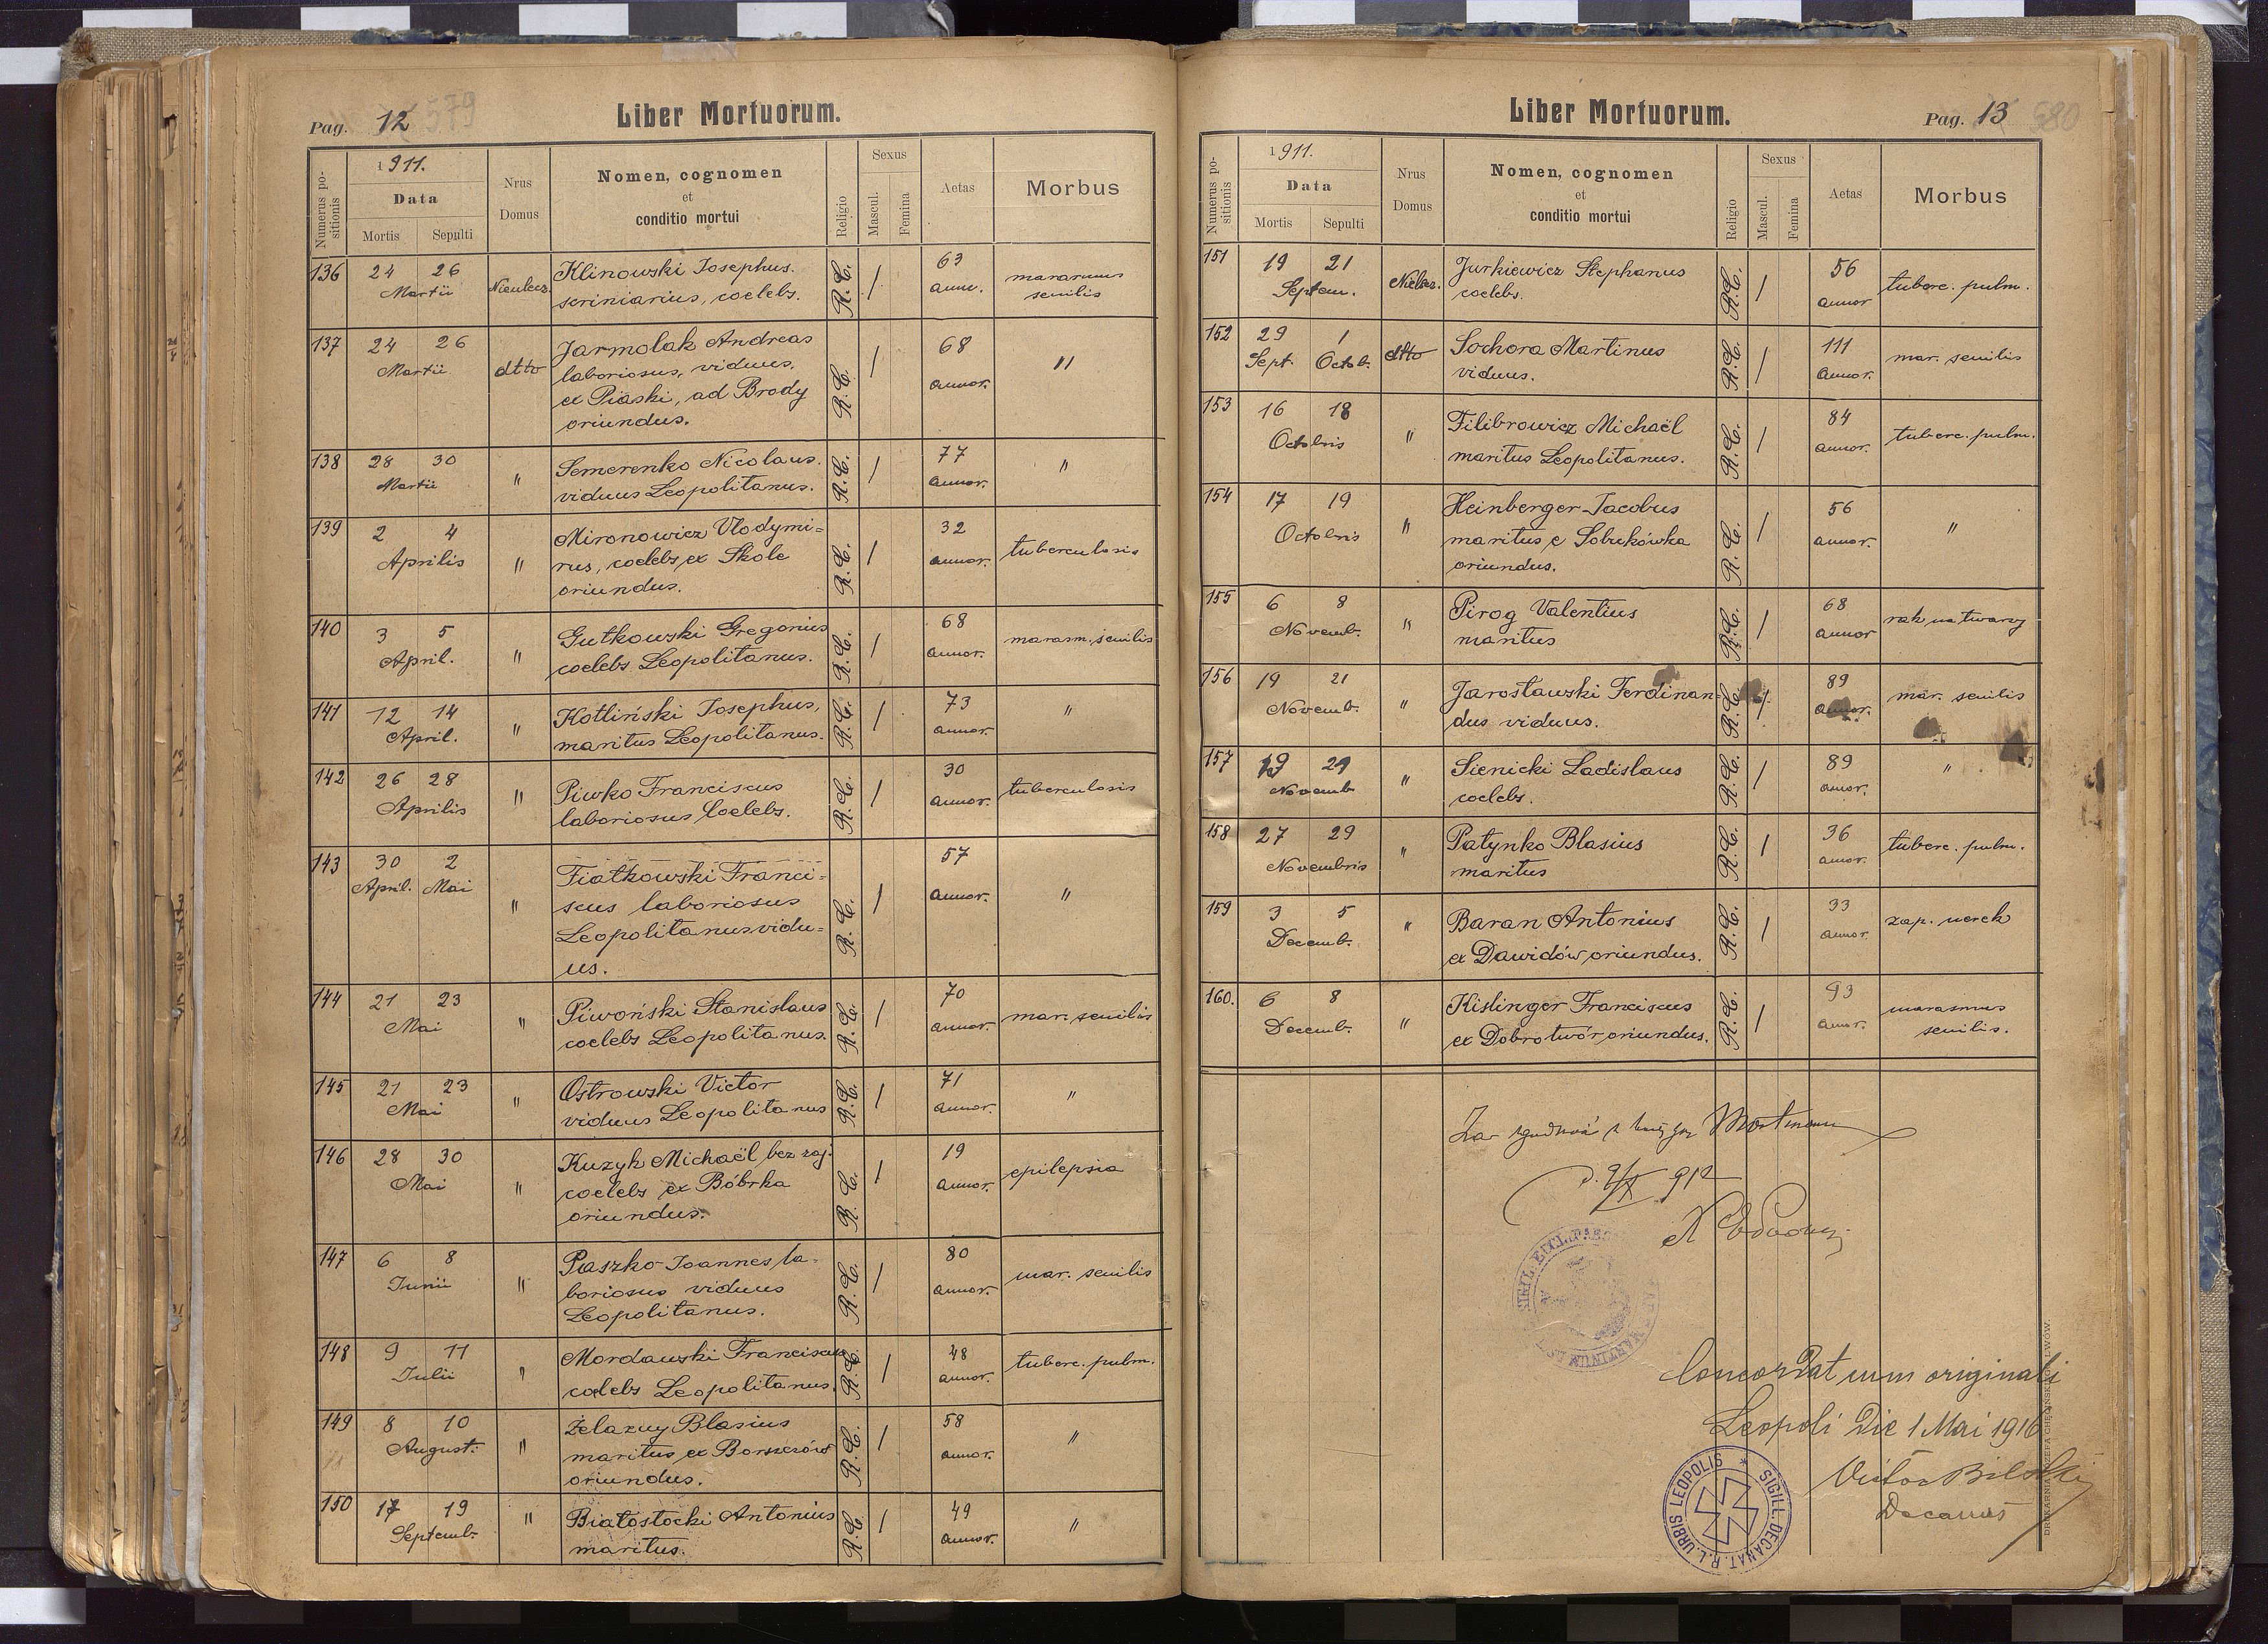 Pag. 12 579
Liber Mortuorum.
Numerus positionis
1911.
Data
Mortis Sepulti
Nrus Domus
Nomen, cognomen
et
conditio mortui
Religio
Sexus
Mascul. Femina
Aetas
Morbus
136 24 26 Klinowski Josephus. R.C. / 63
Martii scriniarius, coelebs. ann. senilis
137 24 26 Jarmolak Andreas 68
Martii dtto laboriosus, viduus. R.C. / annor. "
ex Piaski, ad Brody
oriundus.
138 28 30 Semerenko Nicolaus. R.C. / 77 "
Martii " viduus Leopolitanus. annor.
139 2 4 Mironowicz Vlodymi= 32
Aprilis " rus, coelebs ex Skole R.C. / annor. tuberculosis
oriundus.
140 3 5 Gutkowski Gregorius R.C. / 68 marasm. senilis
April. " coelebs Leopolitanus. annor.
141 12 14 Kotliński Josephus, R.C. / 73 "
April. " maritus Leopolitanus. annor.
142 26 28 Piwko Franciscus R.C. / 30 tuberculosis
Aprilis " laboriosus coelebs. annor.
143 30 2 Fiałkowski Franci= 57
April. Mai scus laboriosus R.C. / annor. "
" Leopolitanus vidu=
us.
144 21 23 Piwoński Stanislaus R.C. / 70 mar. senilis
Mai " coelebs Leopolitanus. annor.
145 21 23 Ostrowski Victor R.C. / 71 "
Mai " viduus Leopolitanus annor.
146 28 30 Kuzyk Michaël bez zaj. 19 epilepsia
Mai " coelebs ex Bóbrka R.C. / annor.
oriundus.
147 6 8 Paszko Joannes la= 80
Junii " boriosus viduus R.C. / annor. mar. senilis
Leopolitanus.
148 9 11 Mordawski Franciscus R.C. / 48 tuberc. pulm.
Julii " coelebs Leopolitanus. annor.
149 8 10 Żelazny Blasius 58
August. " maritus ex Borszczów R.C. / annor. "
oriundus.
150 17 19 " Białostocki Antonius R.C. / 49 "
Septemb. maritus. annor.
Liber Mortuorum.
Pag. 13 580
Numerus positionis
1911.
Data
Mortis Sepulti
Nrus Domus
Nomen, cognomen
et
conditio mortui
Religio
Sexus
Mascul. Femina
Aetas
Morbus
151 19 21 Jurkiewicz Stephanus R.C. / 56 tuberc. pulm.
Septem. coelebs. annor
152 29 1 dtto Sochora Martinus R.C. / 111 mar. senilis
Sept. Octob. viduus. annor.
153 16 18 Filibrowicz Michaël R.C. / 84 tuberc. pulm.
Octobris " maritus Leopolitanus. annor.
154 17 19 Heinberger Jacobus 56
Octobris " maritus R.C. / annor. "
oriundus.
155 6 8 Pirog Valentius R.C. / 68 rak na twarzy
Novemb. " maritus annor
156 19 21 Jarosławski Ferdinan= R.C. / 89 mar. senilis
Novemb. " dus viduus. annor.
157 19 21 Sienicki Ladislaus R.C. / 89 "
Novemb " coelebs. annor.
158 27 29 Patynko Blasius R.C. / 36 tuberc. pulm.
Novembris " maritus annor.
159 3 5 Baran Antonius R.C. / 33 zap. nerek
Decemb. " ex Dawidów oriundus. annor.
160. 6 8 Kislinger Franciscus R.C. / 93 marasmus
Decemb. " ex Dobrotwór oriundus. annor. senilis.
Concordat cum originali
Leopoli Die 1 Mai 1916
Victor Bilski
Decanus
SIGILL. DECANAT. R. L. URBIS LEOPOLIS